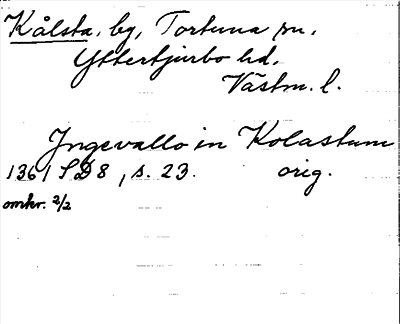 Kålsta, by, Tortuna sn.
Yttertjurbo hd.
Västm. l.
Jngevallo in Kolastum
1361 SD8, s. 23. orig.
omkr. 2/2